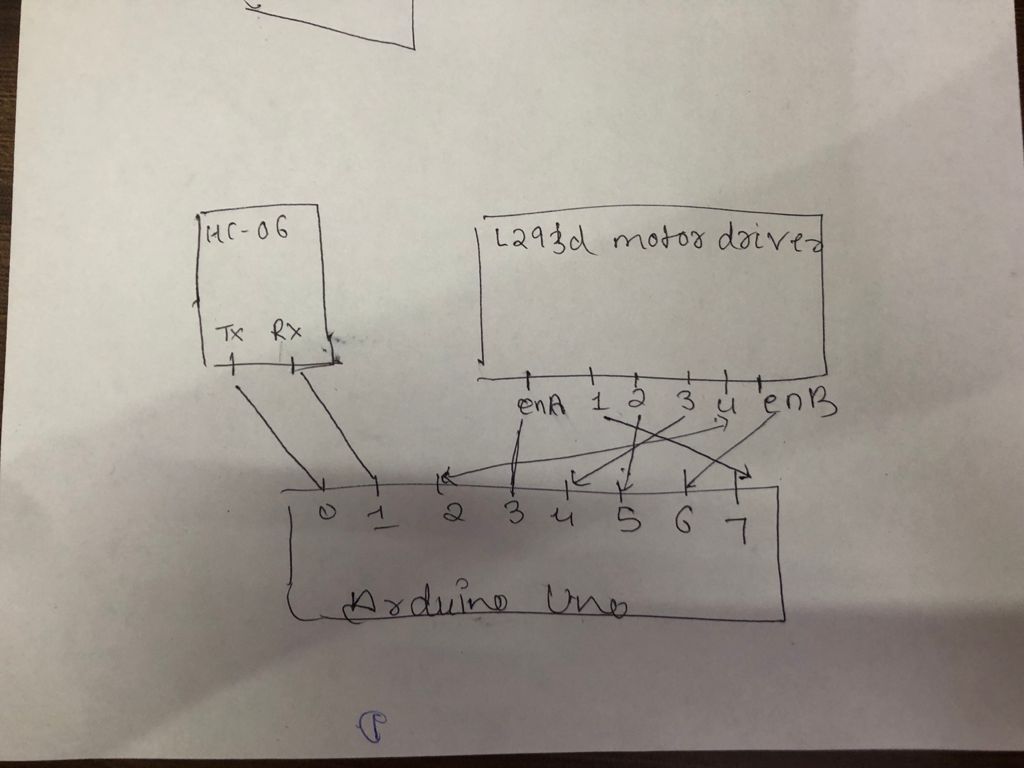 HC-06
L293d motor driver
Tx Rx
enA 1 2 3 4 enB
0 1 2 3 4 5 6 7
Arduino Uno